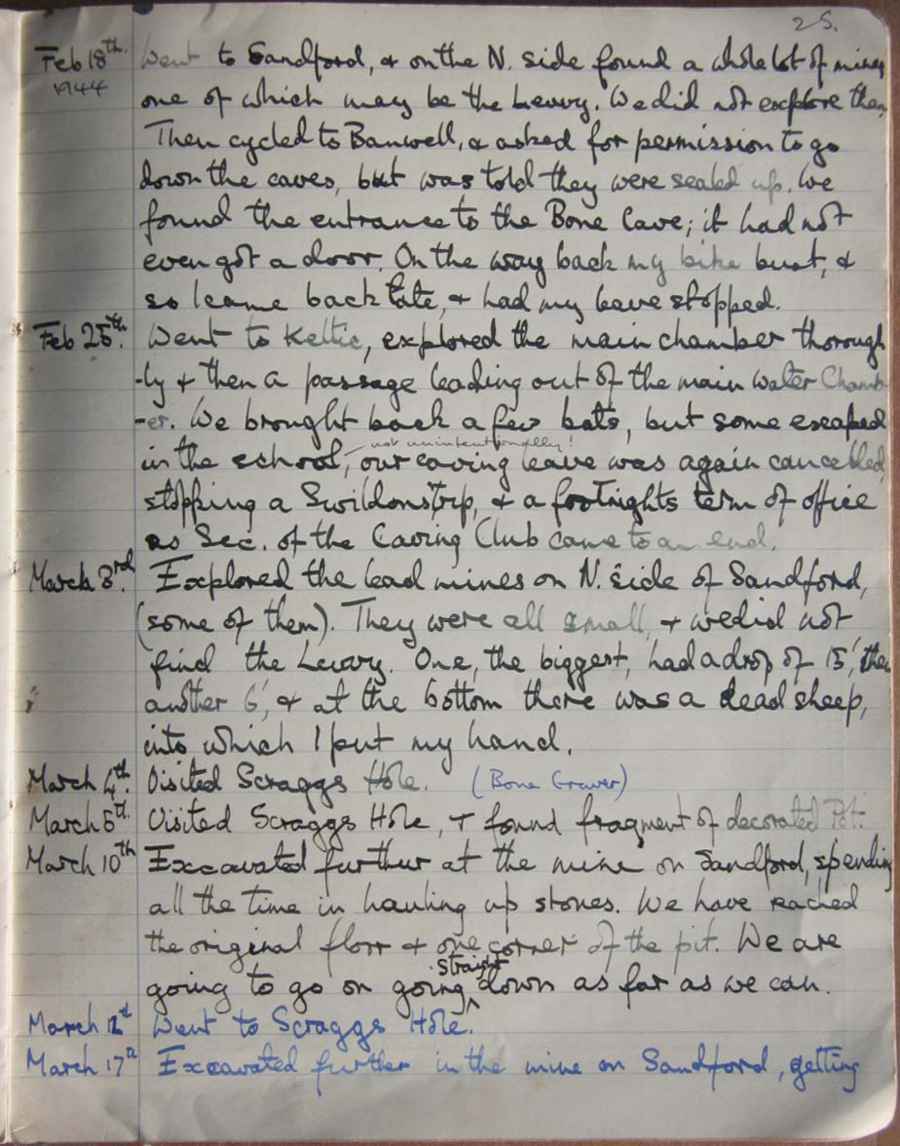 25.
Feb 18th. Went to Sandford, & on the N. side found a whole lot of mines
1944 one of which may be the Levvy. We did not explore them
Then cycled to Banwell, & asked for permission to go
down the caves, but was told they were sealed up. We
found the entrance to the Bone Cave; it had not
even got a door. On the way back my bike bust, &
so I came back late, & had my leave stopped.
Feb 25th. Went to Keltic, explored the main chamber thorough
-ly & then a passage leading out of the main water Chamb-
-er. We brought back a few bats, but some escaped
not unintentionally!
in the school, our caving leave was again cancelled,
stopping a Swildons trip, & a fortnights term of office
as Sec. of the Caving Club came to an end.
March 3rd. Explored the lead mines on N. side of Sandford,
(some of them). They were all small, & we did not
find the Levvy. One, the biggest, had a drop of 15', then
another 6', & at the bottom there was a dead sheep,
into which I put my hand.
March 4th. Visited Scraggs Hole. (Bone Graver)
March 5th. Visited Scraggs Hole, & found fragment of decorated Pot.
March 10th Excavated further at the mine on Sandford, spending
all the time in hauling up stones. We have reached
the original floor & one corner of the pit. We are
straight
going to go on going down as far as we can.
March 12th Went to Scraggs Hole.
March 17th Excavated further in the mine on Sandford, getting